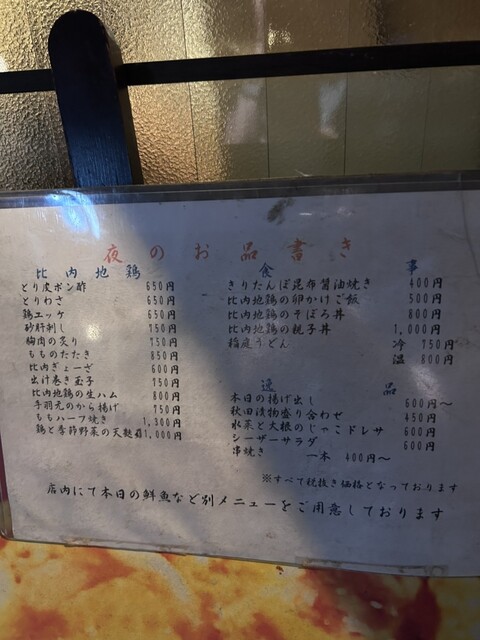 夜のお品書き
比内地鶏
とり皮ポン酢 650円
とりわさ 650円
鶏エッグ 650円
砂肝刺し 750円
胸肉の炙り 750円
もものたたき 850円
比内ぎょーざ 600円
出汁巻き玉子 750円
比内地鶏の生ハム 800円
手羽元のから揚げ 750円
ももハーフ焼き 1,300円
鶏と季節野菜の天麩羅1,000円
食事
きりたんぽ昆布醤油焼き 400円
比内地鶏の卵かけご飯 500円
比内地鶏のそぼろ丼 800円
比内地鶏の親子丼 1,000円
稲庭うどん 冷 750円
温 800円
逸品
本日の揚げ出し 600円〜
秋田漬物盛り合わせ 450円
水菜と大根のじゃこドレサ 600円
シーザーサラダ 600円
串焼き 一本 400円〜
※すべて税抜き価格となっております
店内にて本日の鮮魚など別メニューをご用意しております